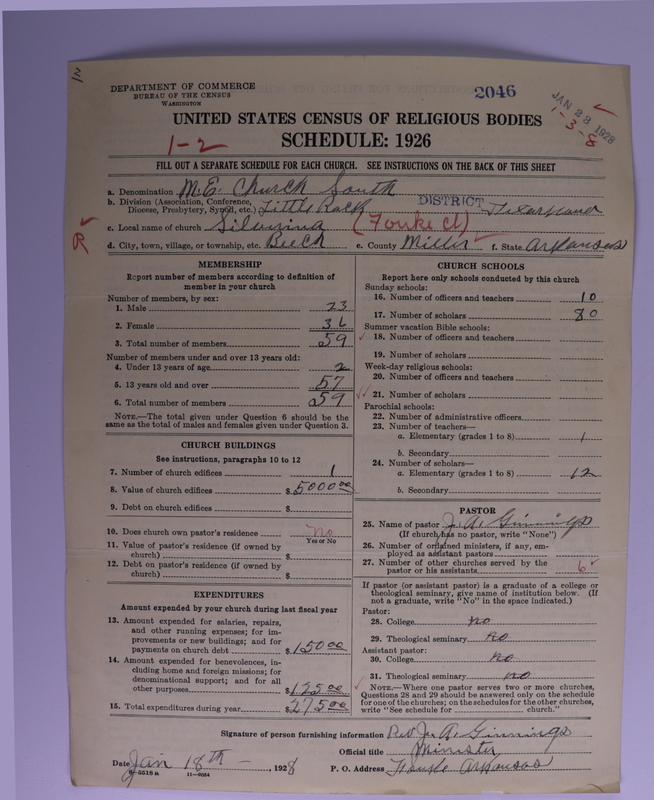 DEPARTMENT OF COMMERCE
BUREAU OF THE CENSUS
WASHINGTON
2046
JAN 23 1928
1-3-8
UNITED STATES CENSUS OF RELIGIOUS BODIES
1-2
SCHEDULE: 1926
FILL OUT A SEPARATE SCHEDULE FOR EACH CHURCH. SEE INSTRUCTIONS ON THE BACK OF THIS SHEET
a. Denomination M.E. Church South
b. Division (Association, Conference, Diocese, Presbytery, Synod, etc.) Little Rock DISTRICT Texarkana
c. Local name of church Silverina (Fouke Ct)
R
d. City, town, village, or township, etc. Beech e. County Miller f. State Arkansas
MEMBERSHIP
Report number of members according to definition of
member in your church
Number of members, by sex:
1. Male 23
2. Female 36
3. Total number of members 59
Number of members under and over 13 years old:
4. Under 13 years of age 2
5. 13 years old and over 57
6. Total number of members 59
NOTE.—The total given under Question 6 should be
same as the total of males and females given under Question 3.
CHURCH BUILDINGS
See instructions, paragraphs 10 to 12
7. Number of church edifices 1
8. Value of church edifices $5000.00
9. Debt on church edifices $
10. Does church own pastor's residence No
Yes or No
11. Value of pastor's residence (if owned by
church) $
12. Debt on pastor's residence (if owned by
church) $
EXPENDITURES
Amount expended by your church during last fiscal year
13. Amount expended for salaries, repairs,
and other running expenses; for im-
provements or new buildings; and for
payments on church debt $150.00
14. Amount expended for benevolences, in-
cluding home and foreign missions; for
denominational support; and for all
other purposes $125.00
15. Total expenditures during year $275.00
CHURCH SCHOOLS
Report here only schools conducted by this church
Sunday schools:
16. Number of officers and teachers 10
17. Number of scholars 80
Summer vacation Bible schools:
18. Number of officers and teachers
19. Number of scholars
Week-day religious schools:
20. Number of officers and teachers
21. Number of scholars
Parochial schools:
22. Number of administrative officers
23. Number of teachers—
a. Elementary (grades 1 to 8) 1
b. Secondary
24. Number of scholars—
a. Elementary (grades 1 to 8) 12
b. Secondary
PASTOR
25. Name of pastor J. A. Ginnings
(If church has no pastor, write "None")
26. Number of ordained ministers, if any, em-
ployed as assistant pastors
27. Number of other churches served by the
pastor or his assistants 6
If pastor (or assistant pastor) is a graduate of a college or
theological seminary, give name of institution below. (If
not a graduate, write "No" in the space indicated.)
Pastor:
28. College no
29. Theological seminary no
Assistant pastor:
30. College no
31. Theological seminary no
NOTE.—Where one pastor serves two or more churches,
Questions 28 and 29 should be answered only on the schedule
for one of the churches; on the schedules for the other churches,
write "See schedule for church."
Signature of person furnishing information Rev. J. A. Ginnings
Official title Minister
Date Jan 18th, 1928 P. O. Address Fouke Arkansas
8-5518a 11-9034